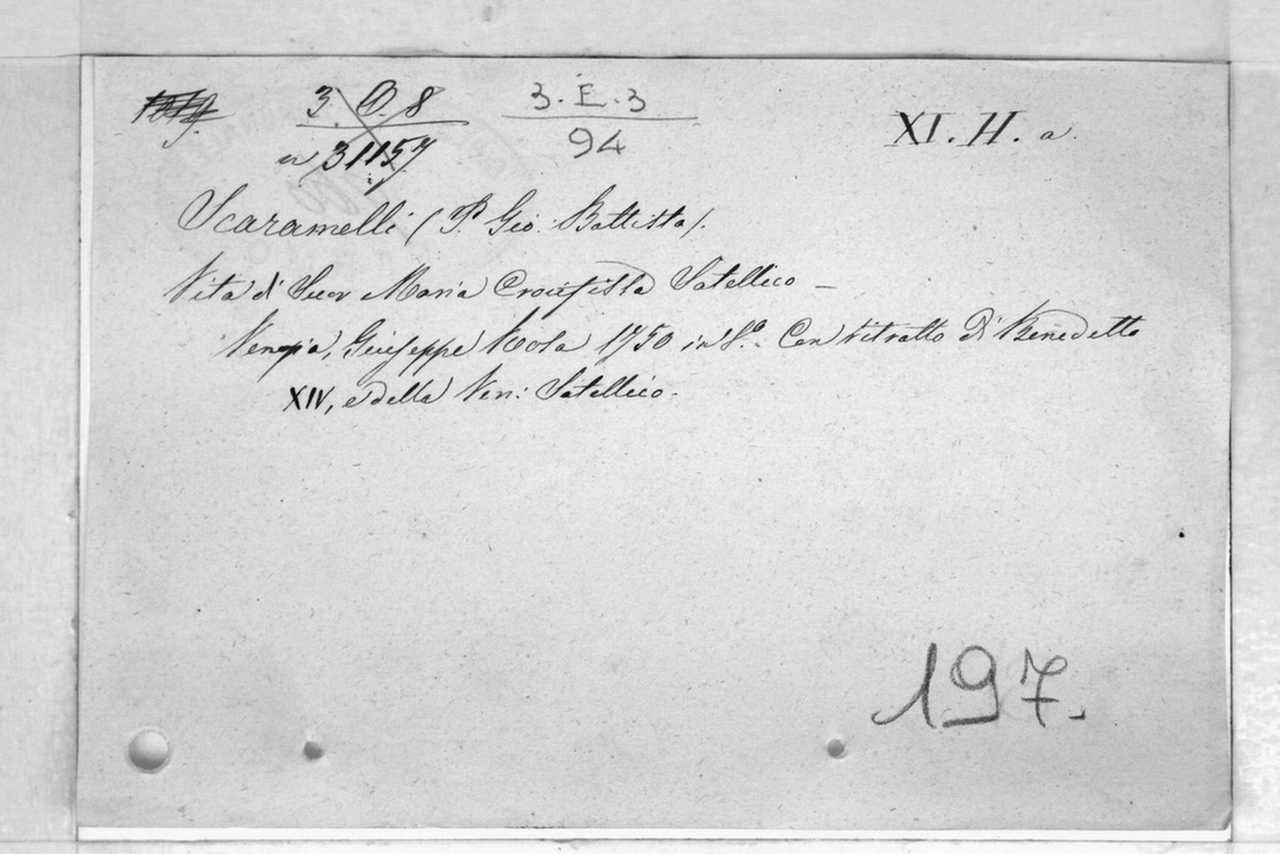 3. O. 8
3. E. 3
XI. H. a.
n 31157
94
Scaramelli (P. Gio. Battista).
Vita di Suor Maria Crocifissa Satellico –
Venezia, Giuseppe Rosa 1750 in 8.° Con ritratto di Benedetto
XIV, e della Ven: Satellico.
197.